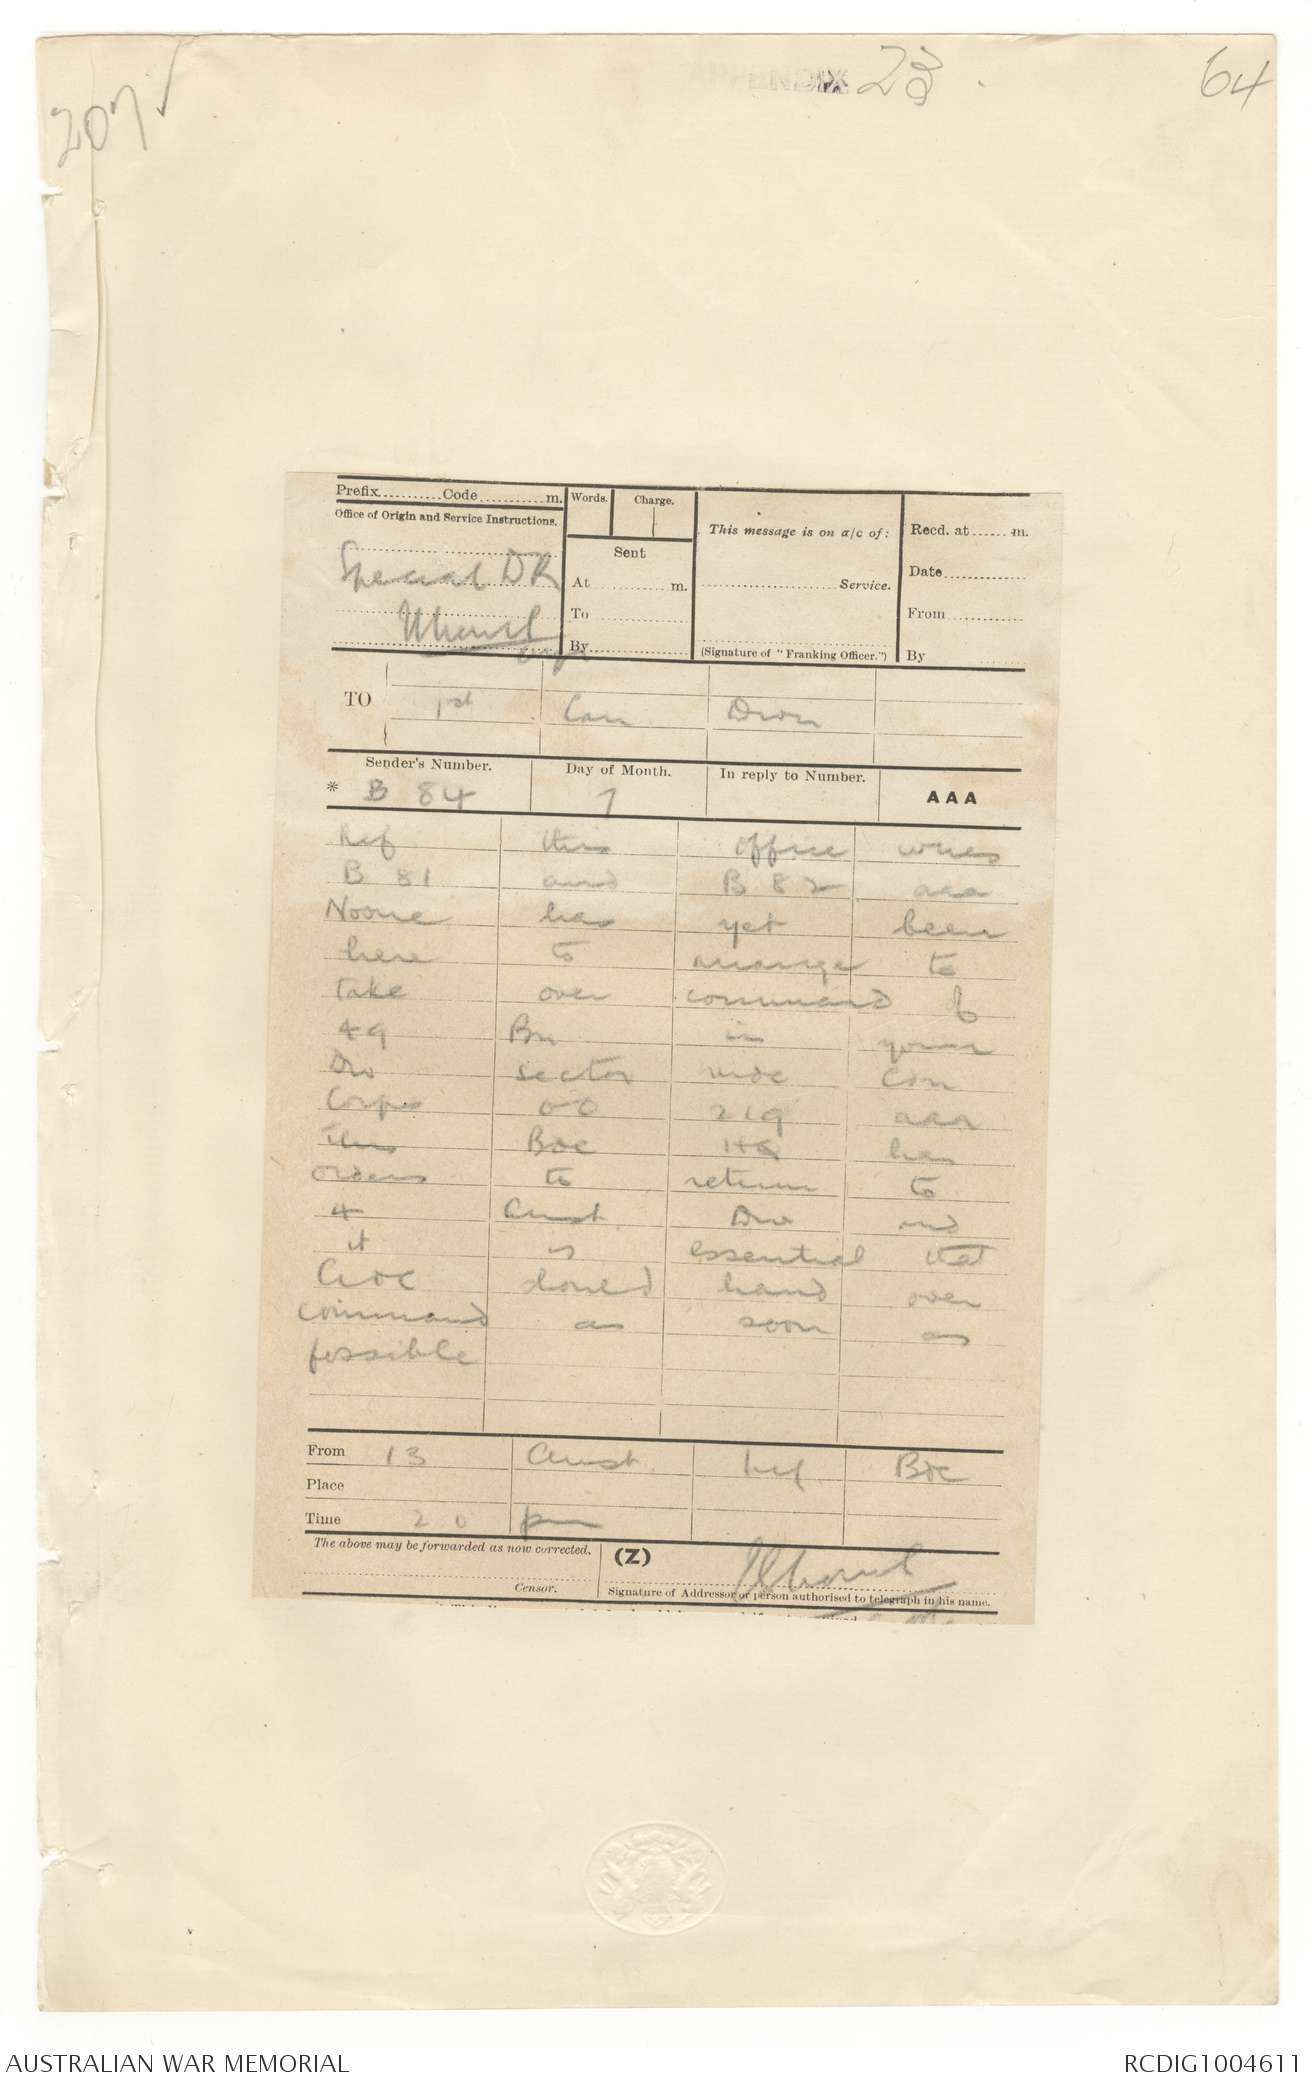 207 ✓
APPENDIX 23
64
Prefix..........Code...........m.
Words.
Charge.
This message is on a/c of:
Recd. at.......m.
Office of Origin and Service Instructions.
Special DR
Sent
At............m.
To............
By............
....................Service.
(Signature of "Franking Officer.")
Date............
From............
By
TO
1st Can Divn
Sender's Number.
Day of Month.
In reply to Number.
AAA
* B 84
7
Ref this office wires
B 81 and B 82 aaa
Noone has yet been
here to arrange to
take over command of
49 Bn in your
Div sector vide Can
Corps OO 219 aaa
This Bde HQ has
orders to return to
4 Aust. Div and
it is essential that
GOC should hand over
command as soon as
possible
From 13 Aust. Inf. Bde
Place
Time 2 0 pm
The above may be forwarded as now corrected.
(Z)
Censor.
Signature of Addressor or person authorised to telegraph in his name.
AUSTRALIAN WAR MEMORIAL
RCDIG1004611